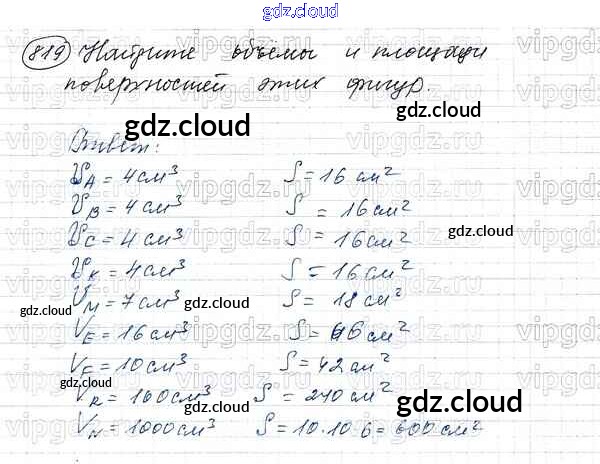 gdz.cloud
819 Найдите объёмы и площади
поверхностей этих фигур.
gdz.cloud
Ответ:
V_A = 4 см³ S = 16 см²
V_B = 4 см³ S = 16 см²
V_C = 4 см³ S = 16 см²
gdz.cloud
V_K = 4 см³ S = 16 см²
V_M = 7 см³ S = 18 см²
gdz.cloud
V_E = 16 см³ S = 46 см²
V_F = 10 см³ S = 42 см²
gdz.cloud
V_R = 160 см³ S = 240 см²
gdz.cloud
V_N = 1000 см³ S = 10·10·6 = 600 см²